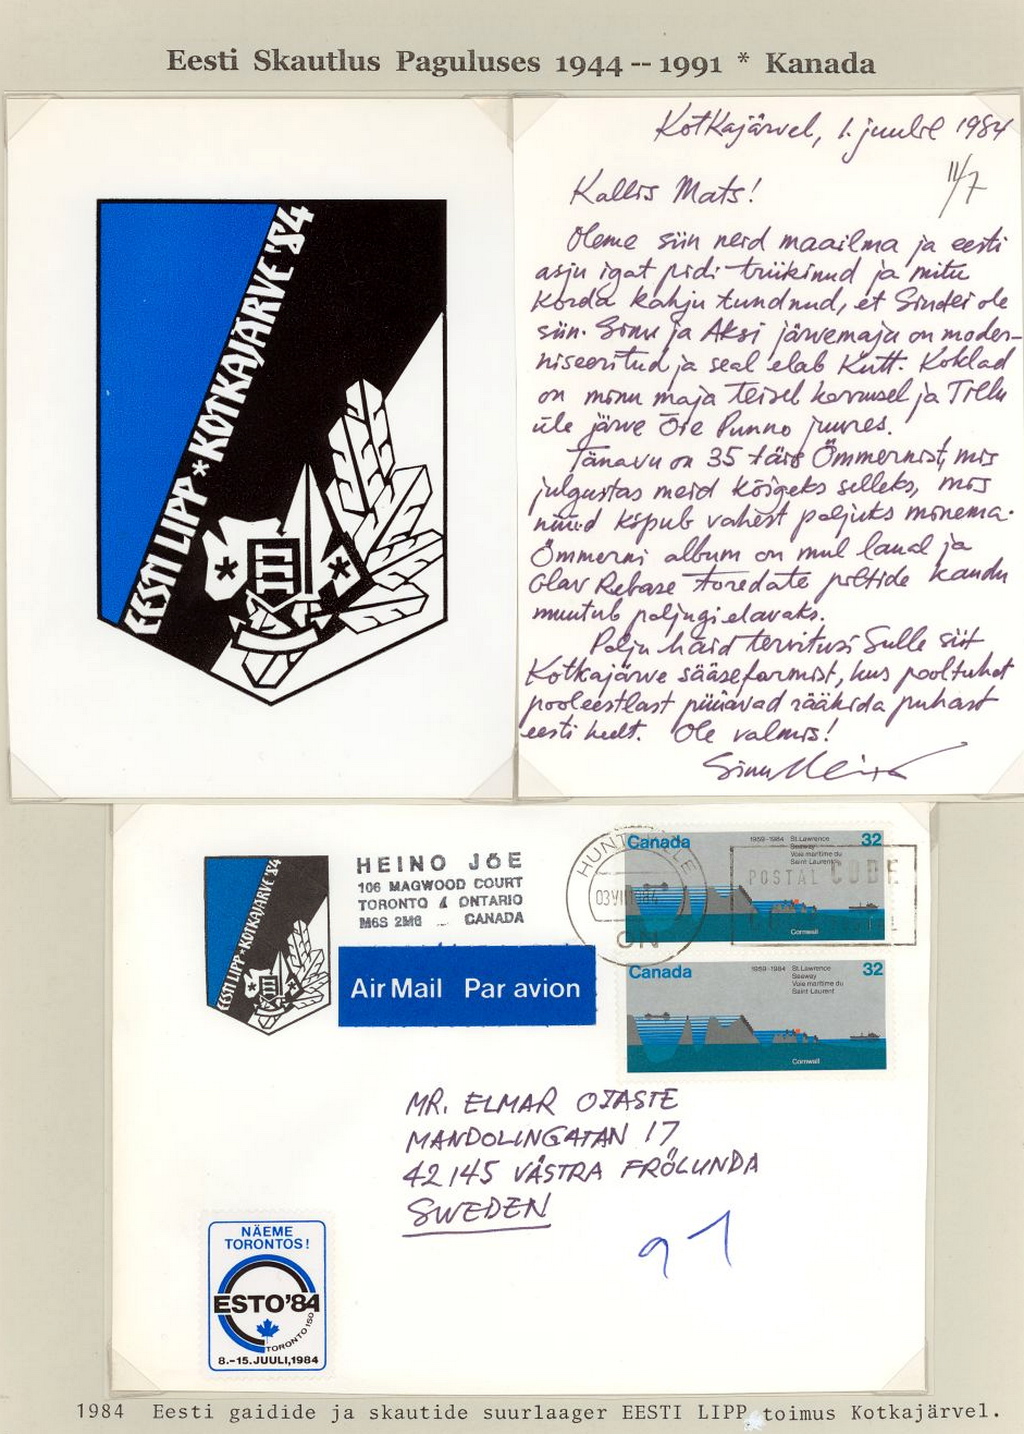 Eesti Skautlus Paguluses 1944 -- 1991 * Kanada
EESTI LIPP * KOTKAJÄRVE '84
Kotkajärvel, 1. juulil 1984
11/7
Kallis Mats!
Oleme siin neid maailma ja eesti
asju igat pidi trükinud ja mitu
korda kahju tundnud, et Sind ei ole
siin. Sinu ja Aksi järvemaja on moder-
niseeritud ja seal elab Kutt. Koklad
on minu maja teisel korrusel ja Tillu
üle järve Õie Punno juures.
Tänavu on 35 täis Ömmernist, mis
julgustas meid kõigeks selleks, mis
nüüd kipub vahest paljuks minema.
Ömmerni album on mul laual ja
Olav Rebase toredate piltide kaudu
muutub paljugi elavaks.
Palju häid tervitusi Sulle siit
Kotkajärve sääsefarmist, kus pooltuhat
pooleestlast püüavad rääkida puhast
eesti keelt. Ole valmis!
Sinu Heino
HEINO JÕE
106 MAGWOOD COURT
TORONTO 4 ONTARIO
M6S 2M6 CANADA
EESTI LIPP * KOTKAJÄRVE '84
Air Mail Par avion
HUNTSVILLE
03 VII 1984
ON
POSTAL CODE
Canada 32
1959-1984 St. Lawrence
Seaway
Voie maritime du
Saint-Laurent
Cornwall
Canada 32
1959-1984 St. Lawrence
Seaway
Voie maritime du
Saint-Laurent
Cornwall
MR. ELMAR OJASTE
MANDOLINGATAN 17
42145 VÄSTRA FRÖLUNDA
SWEDEN
91
NÄEME
TORONTOS!
ESTO'84
TORONTO 150
8.-15. JUULI, 1984
1984 Eesti gaidide ja skautide suurlaager EESTI LIPP toimus Kotkajärvel.